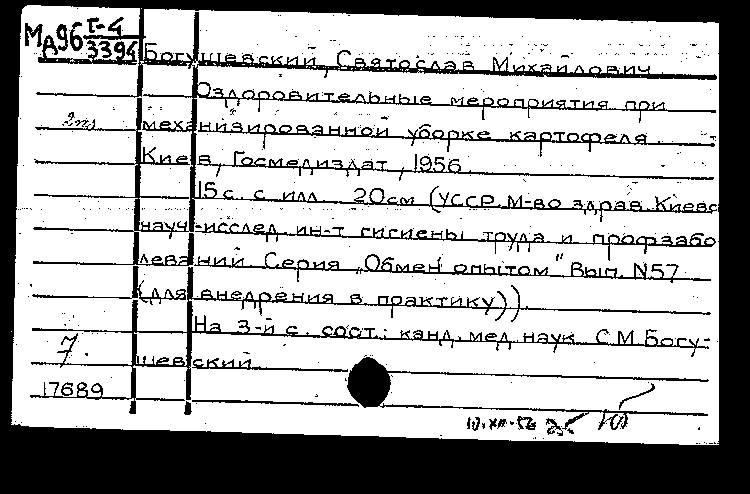 МД96 I-4
3394
Богушевский, Святослав Михайлович
Оздоровительные мероприятия при
2т1 механизированной уборке картофеля.
Киев, Госмедиздат, 1956.
15 с. с илл. 20 см (УССР. М-во здрав. Киевс
науч-исслед. ин-т гигиены труда и профзабо
леваний Серия „Обмен опытом" Вып. N57
(для внедрения в практику))
На 3-й с. сост.: канд. мед. наук С. М. Богу-
7. шевский.
17689